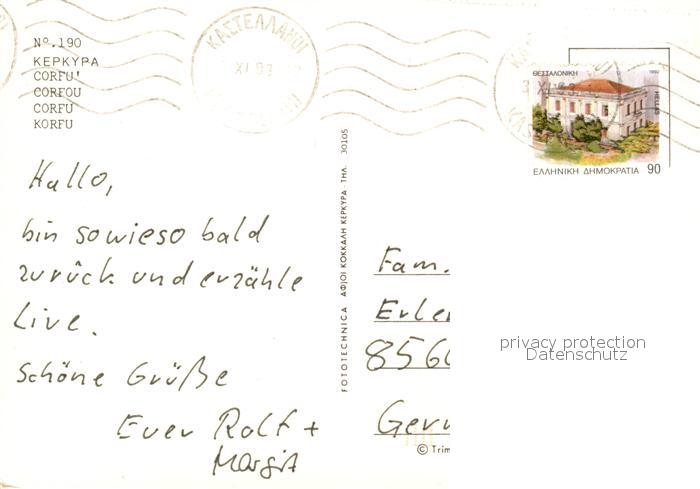 Nº.190
ΚΕΡΚΥΡΑ
CORFU'
CORFOU
CORFÚ
KORFU
ΚΑΣΤΕΛΛΑΝΟΙ
XI 93
ΘΕΣΣΑΛΟΝΙΚΗ 1992
HELLAS
ΕΛΛΗΝΙΚΗ ΔΗΜΟΚΡΑΤΙΑ 90
Hallo,
bin sowieso bald
zurück und erzähle
Live.
Schöne Grüße
Euer Rolf +
Margit
FOTOTECHNICA ΑΦΙΟΙ ΚΟΚΚΑΛΗ ΚΕΡΚΥΡΑ - ΤΗΛ. 30105
Fam.
Erle
856
Ger
© Trim
privacy protection
Datenschutz